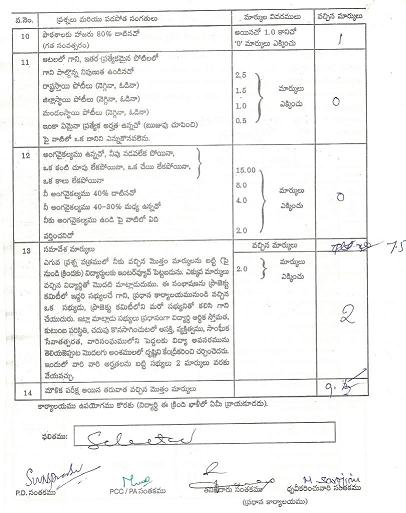 వ.నెం. ప్రశ్నలు మరియు పరపోత సంగతులు మార్కుల వివరములు వచ్చిన మార్కులు
10 పాఠశాలకు హాజరు 80% దాటినచో అయినచో 1.0 కానిచో 1
(గత సంవత్సరం) '0' మార్కులు ఎక్కించు
11 ఆటలలో గాని, ఇతర ప్రత్యేకమైన పోటిలలో
గాని పాల్గొన్న నిపుణత ఉండినచో 2.5
రాష్ట్రస్థాయి పోటీలు (నెగ్గినా, ఓడినా) 1.5 మార్కులు
జిల్లాస్థాయి పోటీలు (నెగ్గినా, ఓడినా) 1.0 ఎక్కించు 0
మండలస్థాయి పోటీలు (నెగ్గినా, ఓడినా)
ఇంకా ఏమైనా ప్రత్యేక అర్హత ఉన్నచో (ఋజువు చూపించి) 0.5
పై వాటిలో ఒక దానిని ఎన్నుకొనవలెను.
12 అంగవైకల్యము ఉన్నచో, నీవు నడవలేక పోయినా,
ఒక కంటి చూపు లేకపోయినా, ఒక చేయి లేకపోయినా, 15.00
ఒక కాలు లేకపోయినా 8.0
నీ అంగవైకల్యము 40% దాటినచో 4.0 మార్కులు
నీ అంగవైకల్యము 40-30% మధ్య ఉన్నచో ఎక్కించు 0
నీకు అంగవైకల్యము ఉండి పై వాటిలో ఏది 2.0
వర్తించనిచో
13 సమావేశ మార్కులు వచ్చిన మార్కులు 7.5
ఎగువ ప్రశ్న పత్రములో నీకు వచ్చిన మొత్తం మార్కులను బట్టి (పై 2.0 మార్కులు
నుండి క్రిందకు) విద్యార్థులకు ఇంటర్వ్యూన్ పెట్టబడును. ఎక్కువ మార్కులు ఎక్కించు
వచ్చిన విద్యార్థితో మొదలి మాట్లాడుదుము. ఈ సంభాషణను ప్రాజెక్టు
కమిటీలో ఇద్దరు సభ్యులచే గాని, ప్రధాన కార్యాలయమునుండి వచ్చిన
ఒక సభ్యుడు, ప్రాజెక్టు కమిటీలోని మరో సభ్యునితో కలిసి గాని 2
చేయుదురు. ఇట్లా మాట్లాడు సభ్యులు ప్రధానంగా విద్యార్థి ఆర్థిక స్తోమత,
కుటుంబ పరిస్థితి, చదువు కొనసాగించుటలో ఆసక్తి, వ్యక్తిత్వము, సాంఘిక
సేవాతత్పరత, వారిసంఘములోని పెద్దలకు విద్యా అవసరమును
తెలియజెప్పుట మొదలగు అంశములలో దృష్టిని కేంద్రీకరించి చర్చించెదరు.
ఇందులో వారి వారి అర్హతలను బట్టి సభ్యులు 2 మార్కులు వరకు
వేయవచ్చు.
14 మౌఖిక పరీక్ష అయిన తరువాత వచ్చిన మొత్తం మార్కులు 9.5
కార్యాలయము ఉపయోగము కొరకు (విద్యార్థి ఈ క్రింది ఖాళీలో ఏమీ వ్రాయకూడదు).
ఫలితము: Selected
P.D. సంతకము PCC / PA సంతకము తనిఖీదారు సంతకము ధృవీకరించువారి సంతకము
(ప్రధాన కార్యాలయం)